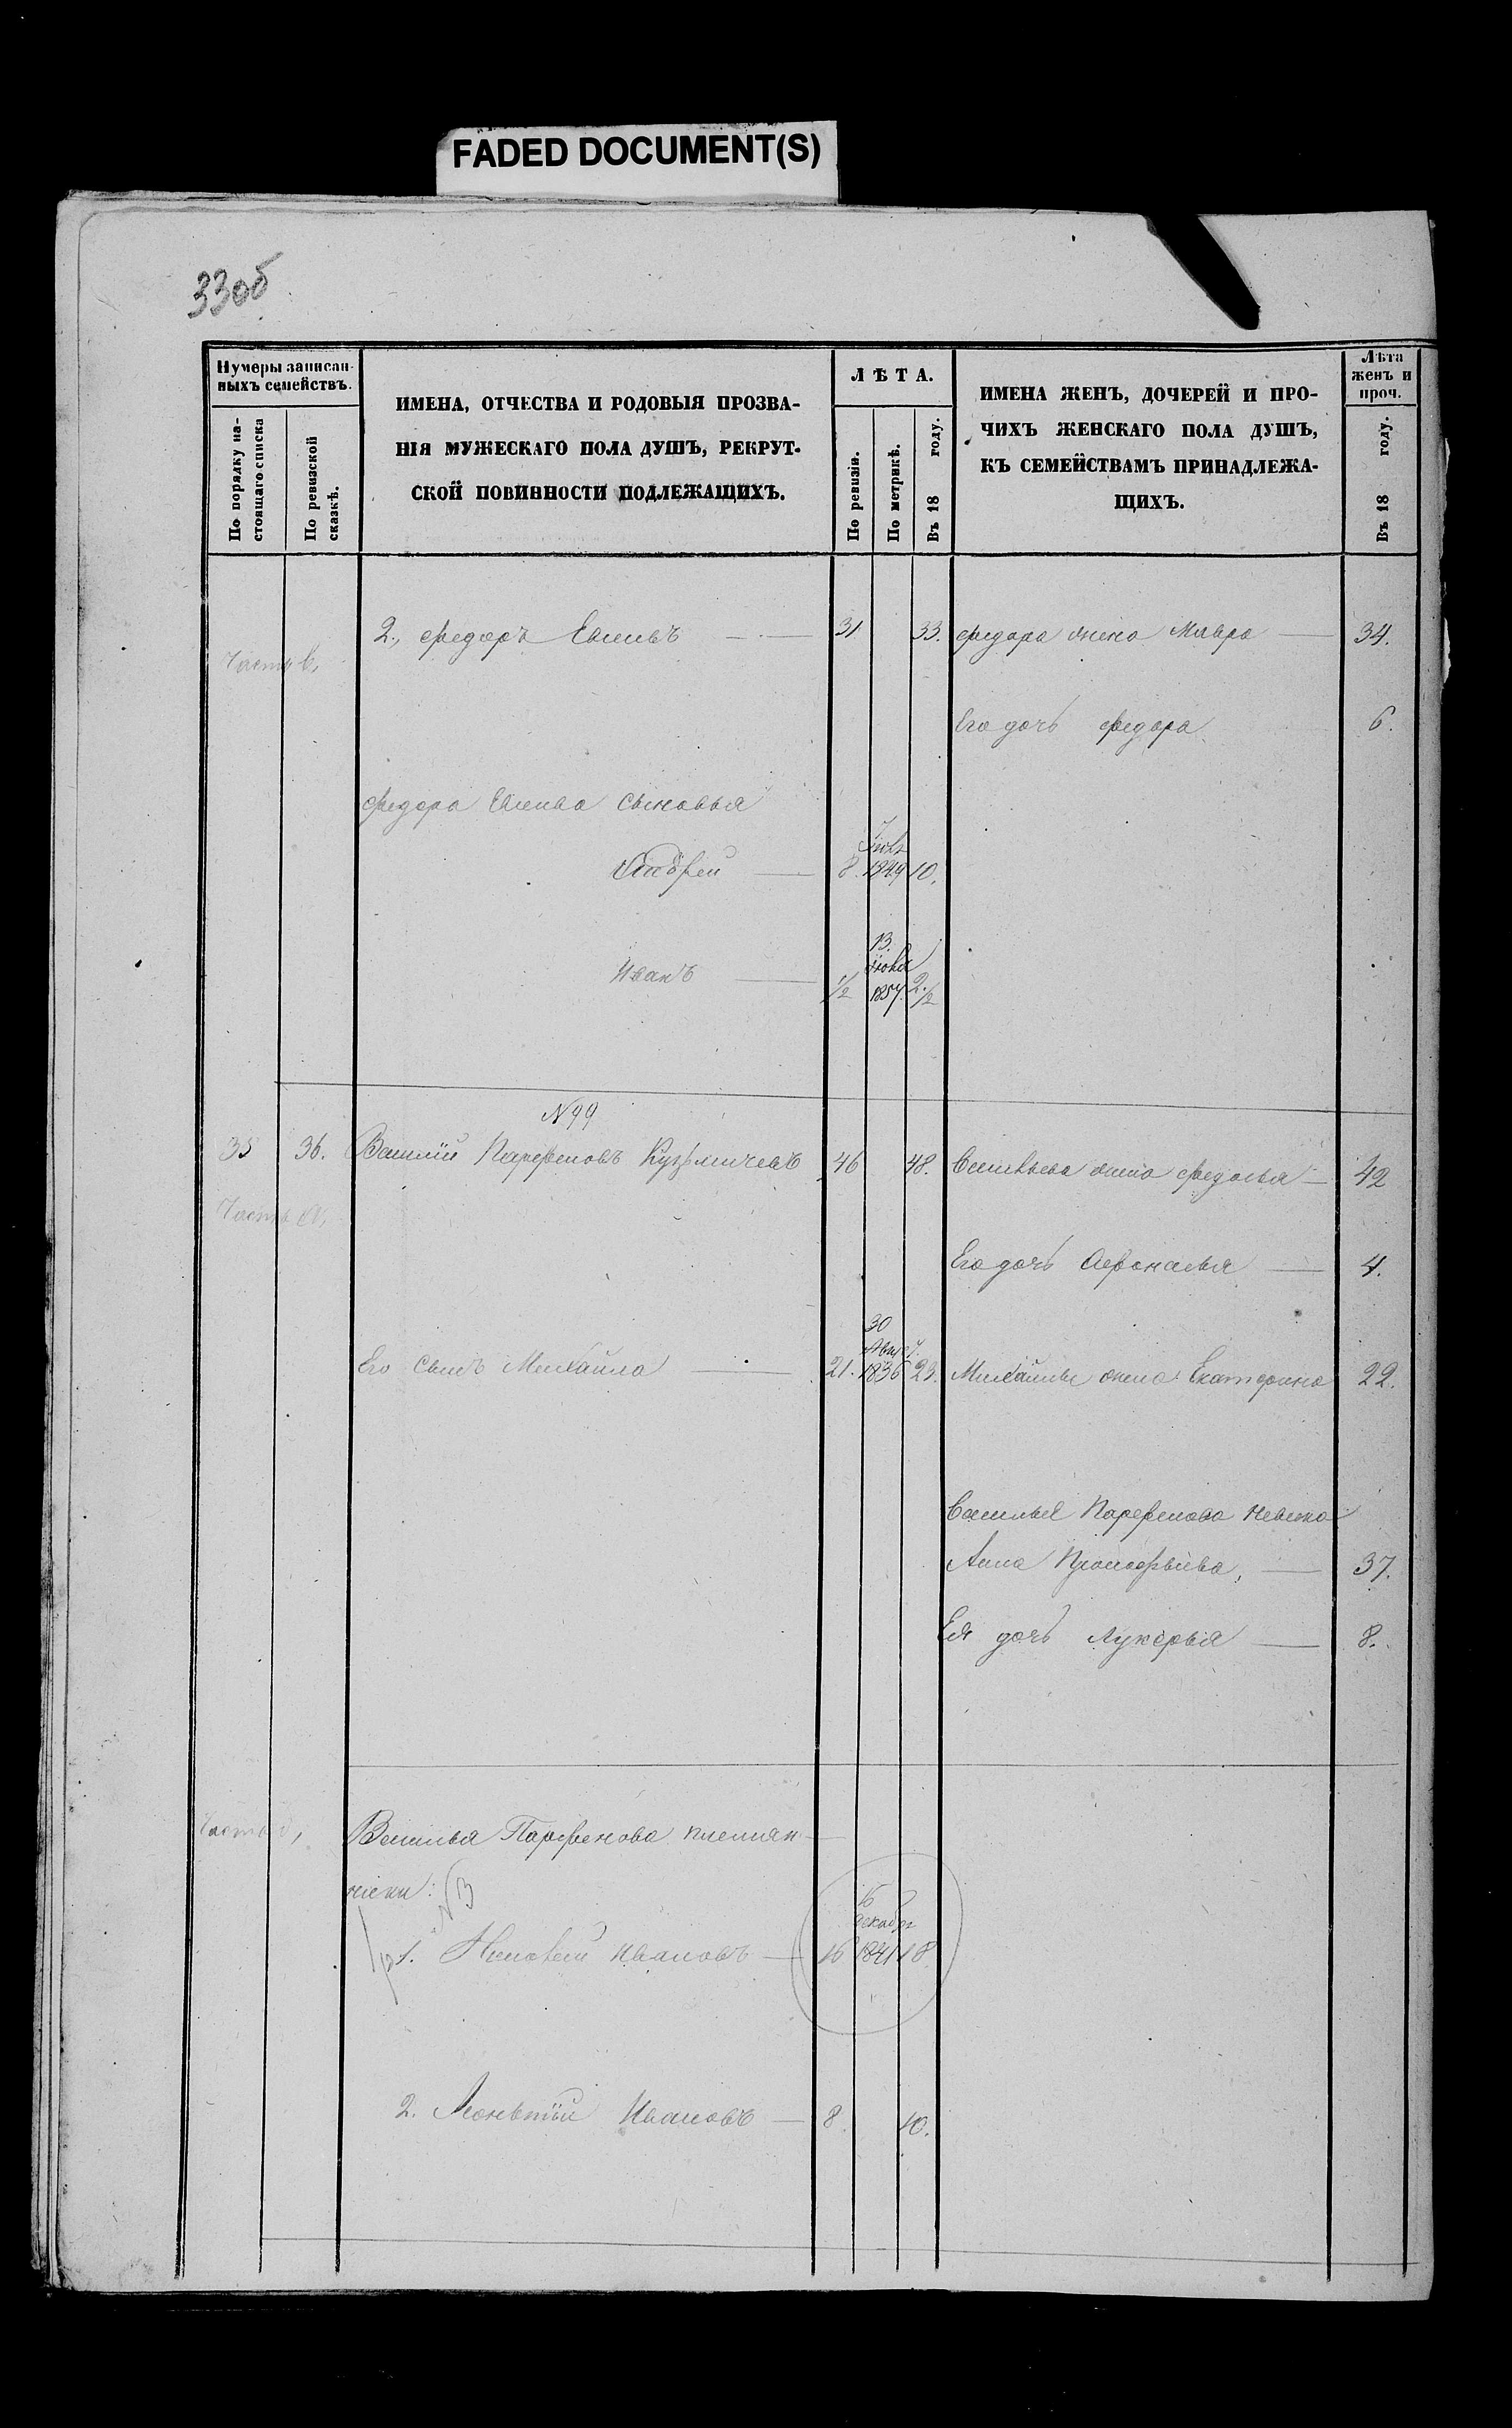 FADED DOCUMENT(S)
33об
Нумеры записан-
ныхъ семействъ.
По порядку на-
стоящаго списка
По ревизской
сказкѣ.
ИМЕНА, ОТЧЕСТВА И РОДОВЫЯ ПРОЗВА-
НІЯ МУЖЕСКАГО ПОЛА ДУШЪ, РЕКРУТ-
СКОЙ ПОВИННОСТИ ПОДЛЕЖАЩИХЪ.
ЛѢТА.
По ревизіи.
По метрикѣ.
Въ 18 году.
ИМЕНА ЖЕНЪ, ДОЧЕРЕЙ И ПРО-
ЧИХЪ ЖЕНСКАГО ПОЛА ДУШЪ,
КЪ СЕМЕЙСТВАМЪ ПРИНАДЛЕЖА-
ЩИХЪ.
Лѣта
женъ и
проч.
Въ 18 году.
2., Федоръ — 31 33. Федора жена Мавра 34.
Часть
Его дочь Федора 6.
Федора сыновья
Андрей — 8. 1849 10.
13.
Иванъ — 1/2 1857. 2 1/2
N99
35 36. Василій Парфеновъ Кузмичевъ 46 48. Васильева жена Федосья — 42
Часть
Его дочь Афонасья — 4.
30
Его сынъ Михайла — 21. 1836 23. Михайлы жена Екатерина 22.
Василья Парфенова невѣстка
Анна Прокофьева, — 37.
Ея дочь Лукерья — 8.
Часть
Василья Парфенова племян-
ники: NB
16
декабр
1. Ивановъ — 16 1841 18
2. Леонтій Ивановъ — 8. 10.